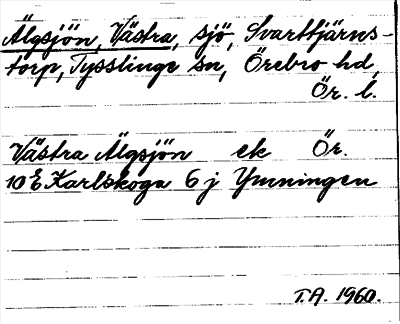 Älgsjön, Västra, sjö, Svarttjärns-
torp, Tysslinge sn, Örebro hd,
Ör. l.
Västra Älgsjön ek Ör.
10 E Karlskoga 6 j Ymningen
T.A. 1960.